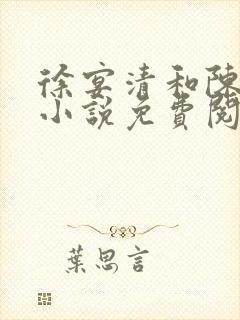 徐宴清和陳
小說免費閱
葉思言